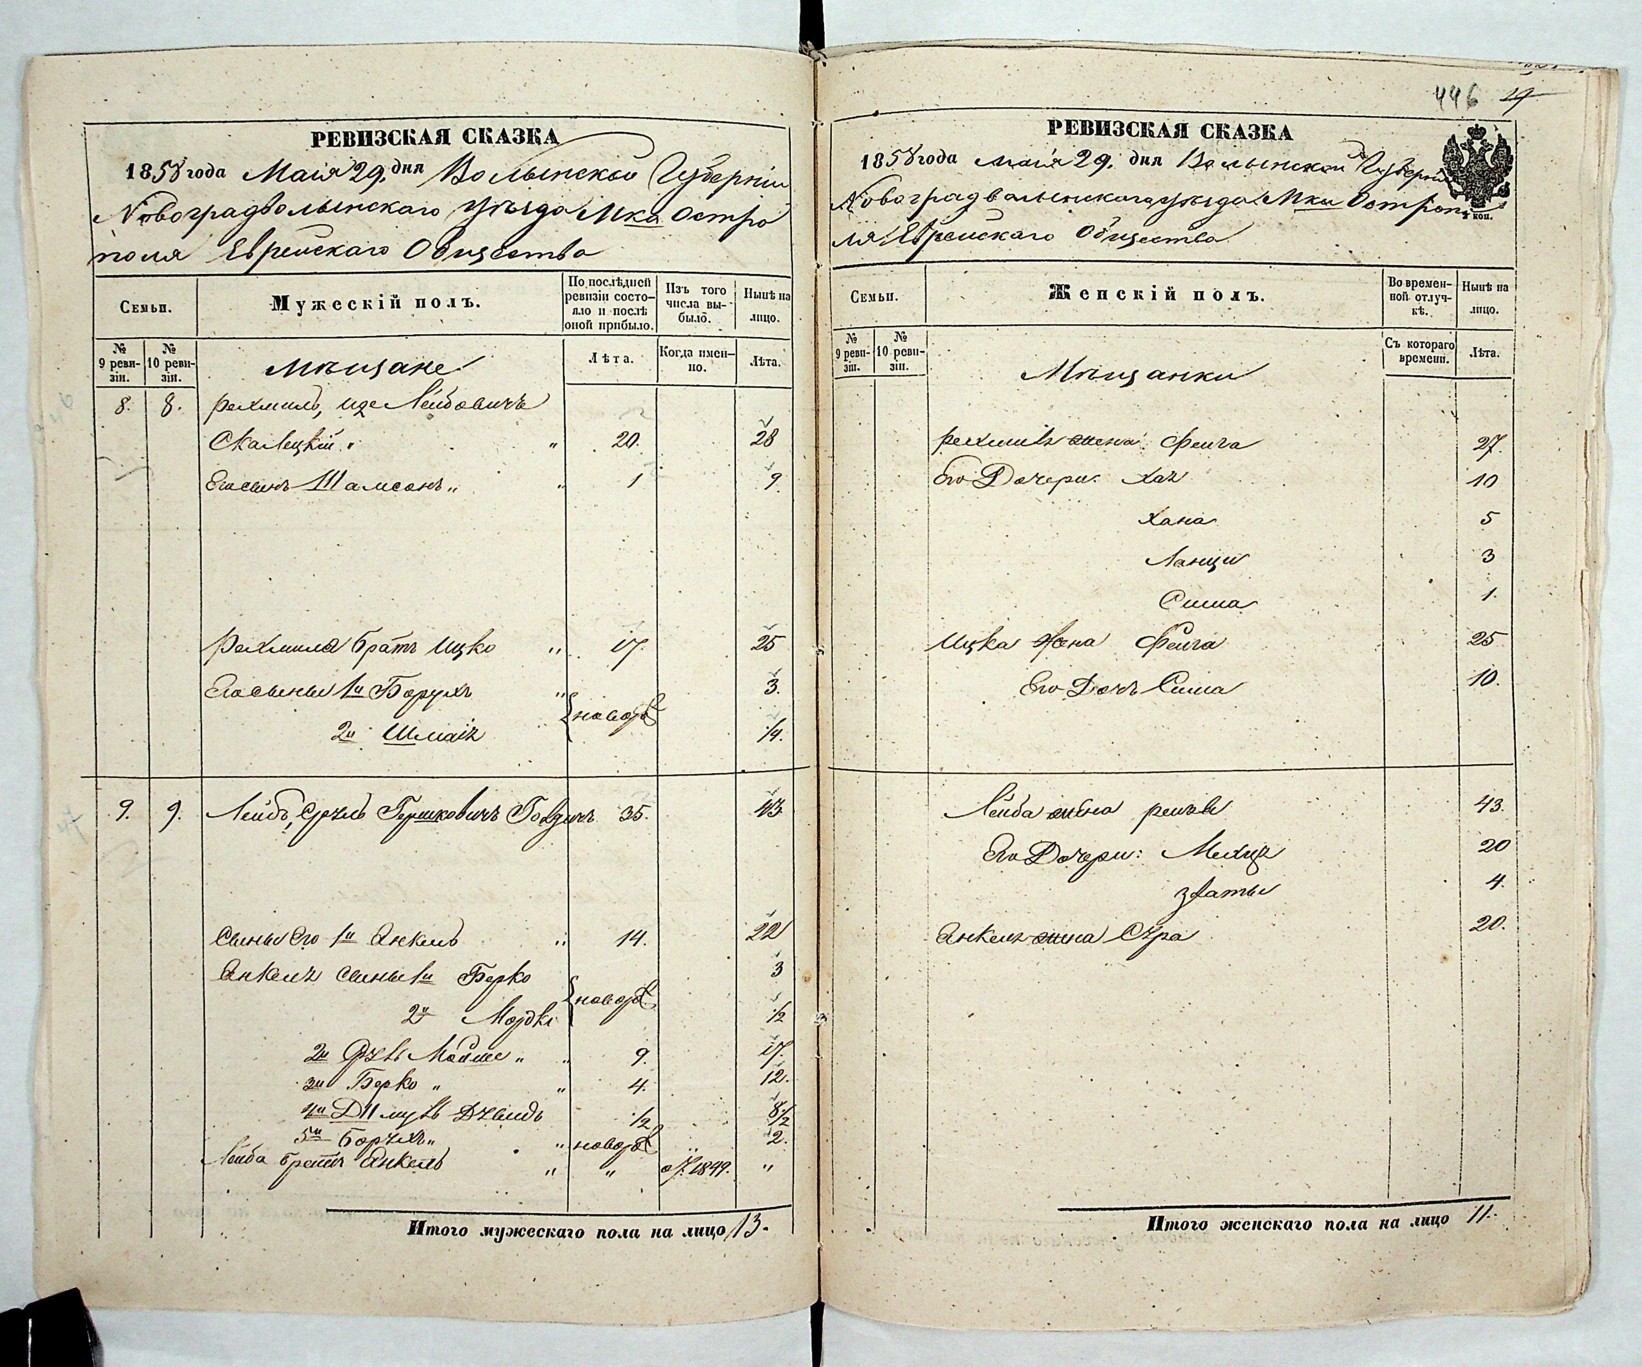 РЕВИЗСКАЯ СКАЗКА
1858 года Маія 29. дня Волынской Губерніи
Новоградволынскаго уѣзда Мка Остро
поля Еврейскаго Общества
Семьи.
Мужескій полъ.
По послѣдней ревизіи состояло и послѣ оной прибыло.
Изъ того числа выбыло.
Нынѣ на лицо.
№ 9 ревизіи.
№ 10 ревизіи.
Мѣщане
Лѣта.
Когда именно.
Лѣта.
8. 8. Рахмиль, Ице Лейбовичъ
Скалецкій " " 20. 28
Его сынъ Шамсонъ " " 1 9.
Рахмиля братъ Ицко " 17. 25
Его сыны 1й Борухъ " 3.
новор
2й Шмаіе 1/4.
9. 9. Лейбъ, Сруль Гершковичъ 35. 43.
Сыны его 1й Янкель " 14. 22
Янкеля сыны 1й Берко 3
новор
2й Мордко 1/2
2й Мойше " " 9. 17.
3й Берко " " 4. 12.
4й Давидъ 1/2 8 1/2
5й Борухъ " " новор 2.
Лейба братъ Янкель " " 1849. "
Итого мужескаго пола на лицо 13.
446 19
РЕВИЗСКАЯ СКАЗКА
1858 года маія 29. дня Волынской Губерніи
Новоградволынскаго уѣзда Мка Остропо
коп.
ля Еврейскаго Общества
Семьи.
Женскій полъ.
Во временной отлучкѣ.
Нынѣ на лицо.
№ 9 ревизіи.
№ 10 ревизіи.
Мѣщанки
Съ котораго времени.
Лѣта.
Рахмиля жена Фейга 27.
Его Дочери: Хая 10
Хана 5
3
Сима 1.
Ицка жена Фейга 25
Его Дочь Сима 10.
Лейба жена 43.
Его Дочери: 20
Златы 4.
Янкеля жена Сура 20.
Итого женскаго пола на лицо 11.